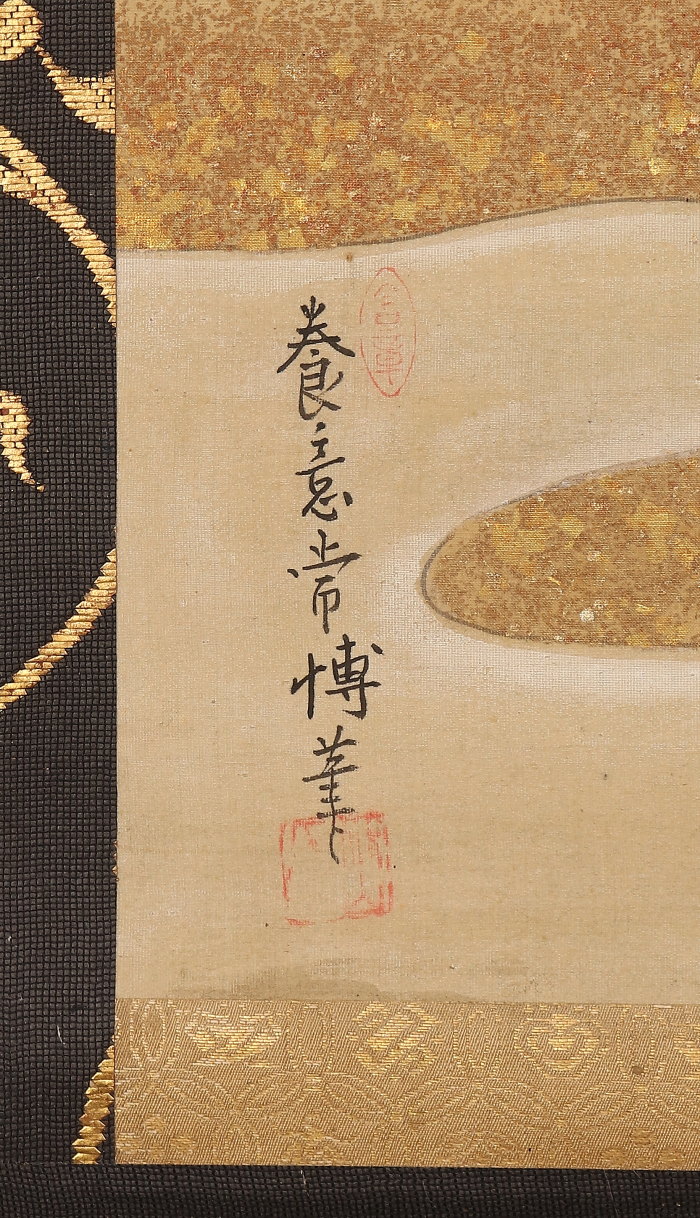 養意常博筆